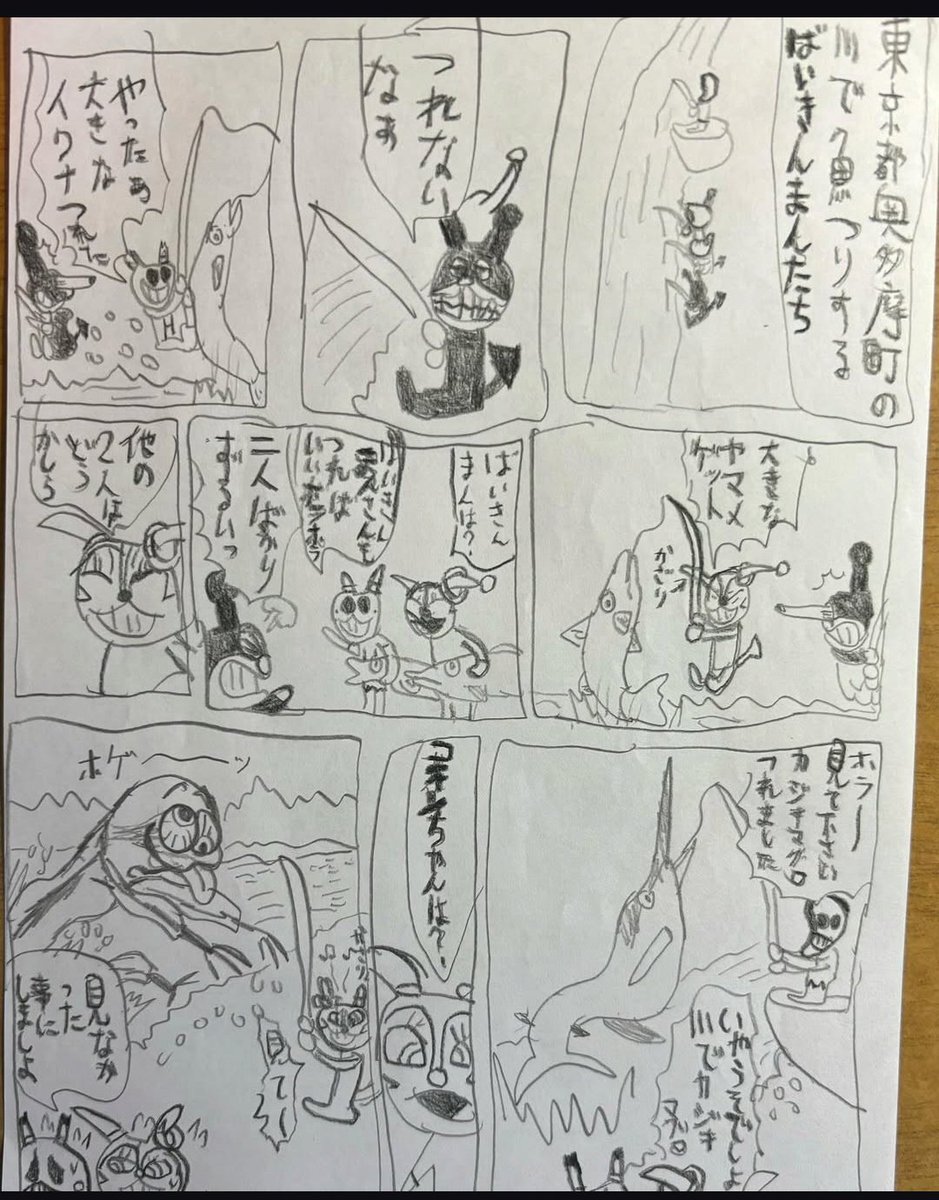 東京都奥多摩町の
川で魚つりする
ばいきんまんたち
つれない
なぁ
やったぁ
大きな
イワナ
つれた
大きな
ヤマメ
ゲット
ばいきん
まんは?
つれば
いい
二人ばかり
ずるいっ
他の
2人は
どう
かしら
ホラー
見て下さい
カジキマグロ
つれました
いやうそでしょ
川でカジキ
ちゃんは?
ホゲーーッ
見てー
見なか
った
事に
しましょ